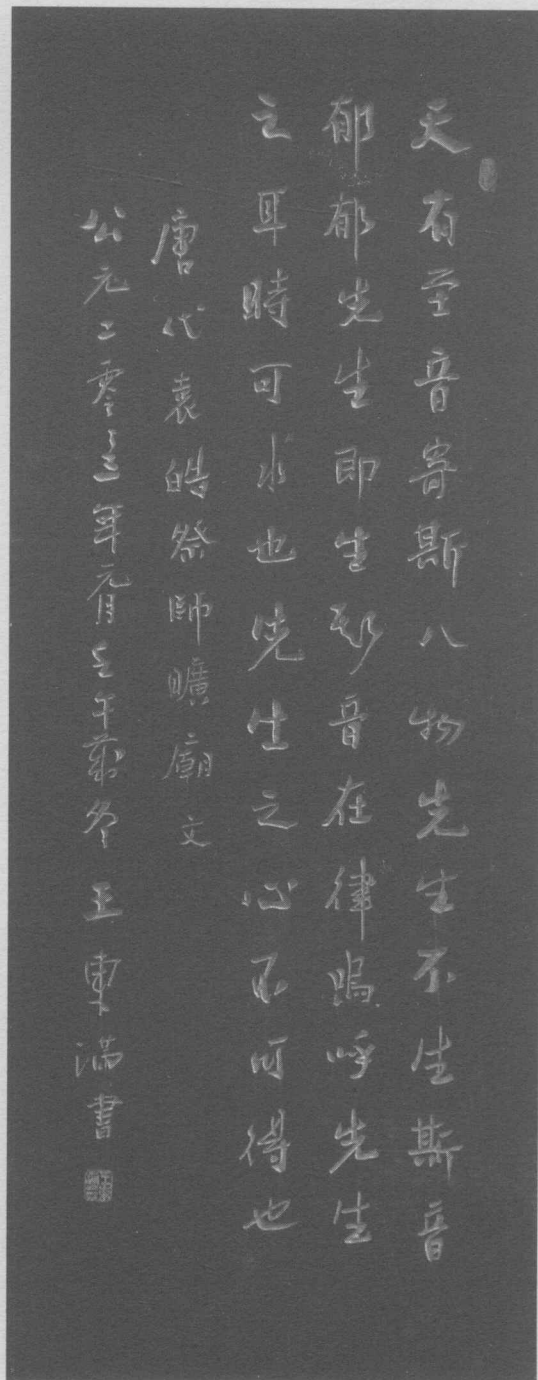 天有至音寄斯八物先生不生斯音
郁郁先生即生斯音在律嗚呼先生
之耳時可求也先生之心不可得也
唐代袁皓祭師曠廟文
公元二零零三年元月壬午冬 王東滿書